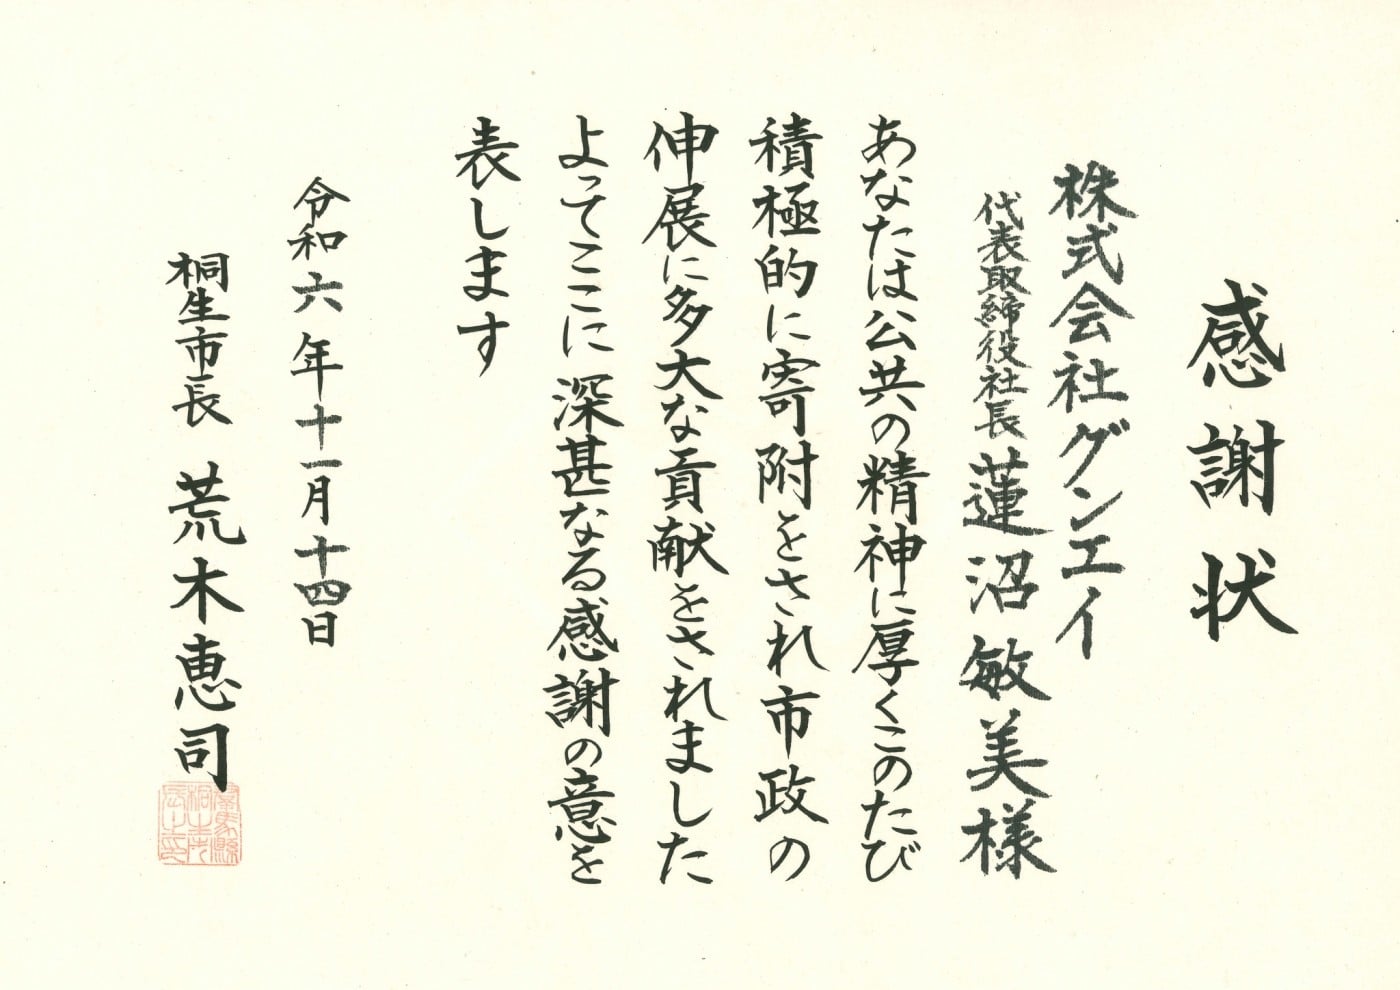 感謝状
株式会社グンエイ
代表取締役社長 蓮沼敏美様
あなたは公共の精神に厚くこのたび
積極的に寄附をされ市政の
伸展に多大な貢献をされました
よってここに深甚なる感謝の意を
表します
令和六年十一月十四日
桐生市長 荒木恵司
群馬縣
桐生市
長之印